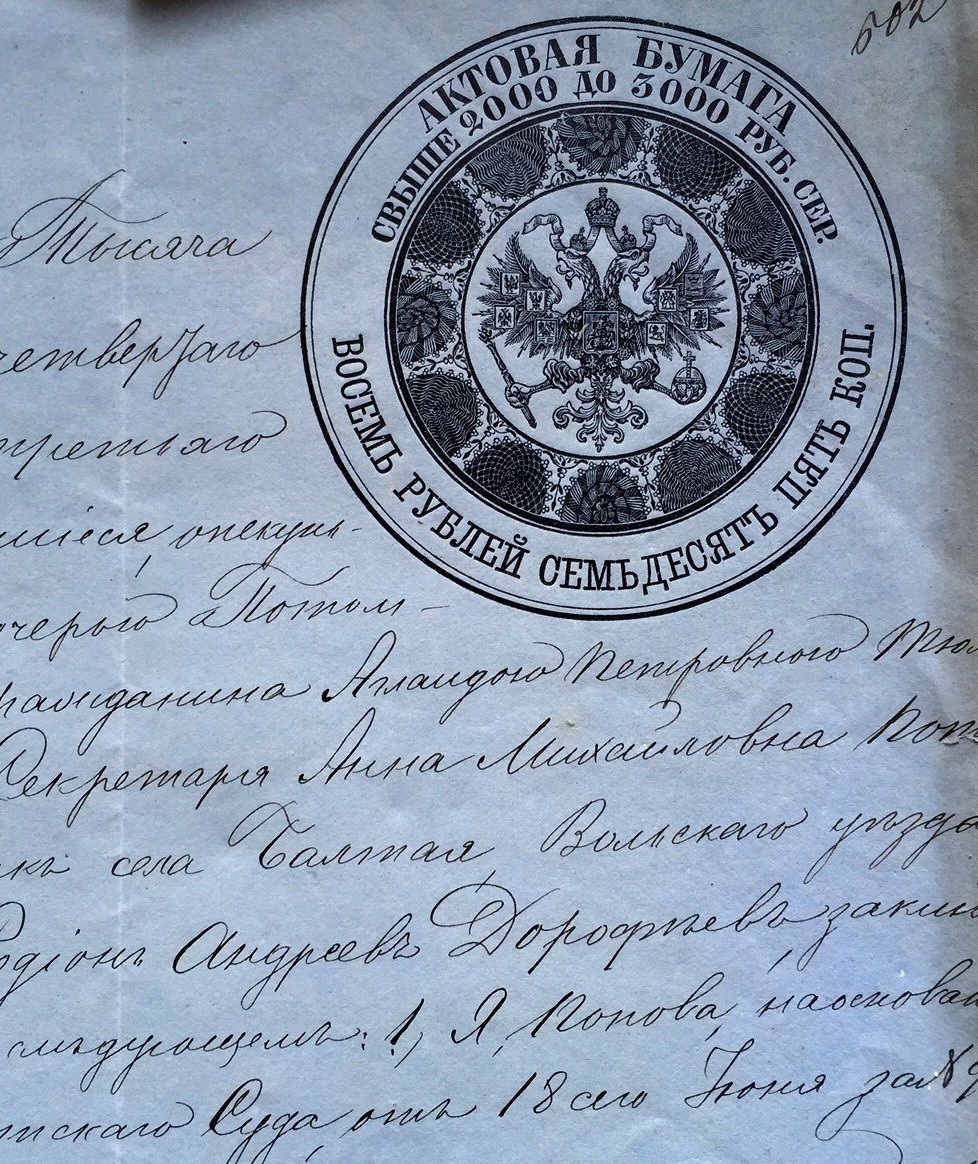 602
АКТОВАЯ БУМАГА
СВЫШЕ 2000 ДО 3000 РУБ. СЕР.
ВОСЕМЬ РУБЛЕЙ СЕМЬДЕСЯТЪ ПЯТЬ КОП.
Тысяча
четвертаго
третьяго
шіеся, опекун-
черью Потом-
гражданина Аглаидою Петровною Тюл
Секретаря Анна Михайловна Поп
къ села Балтая, Вольскаго уѣзда
Родіонъ Андреевъ Дорофѣевъ, заклю
слѣдующемъ: 1, Я, Попова, на основан
тскаго Суда, отъ 18 сего Іюня за №